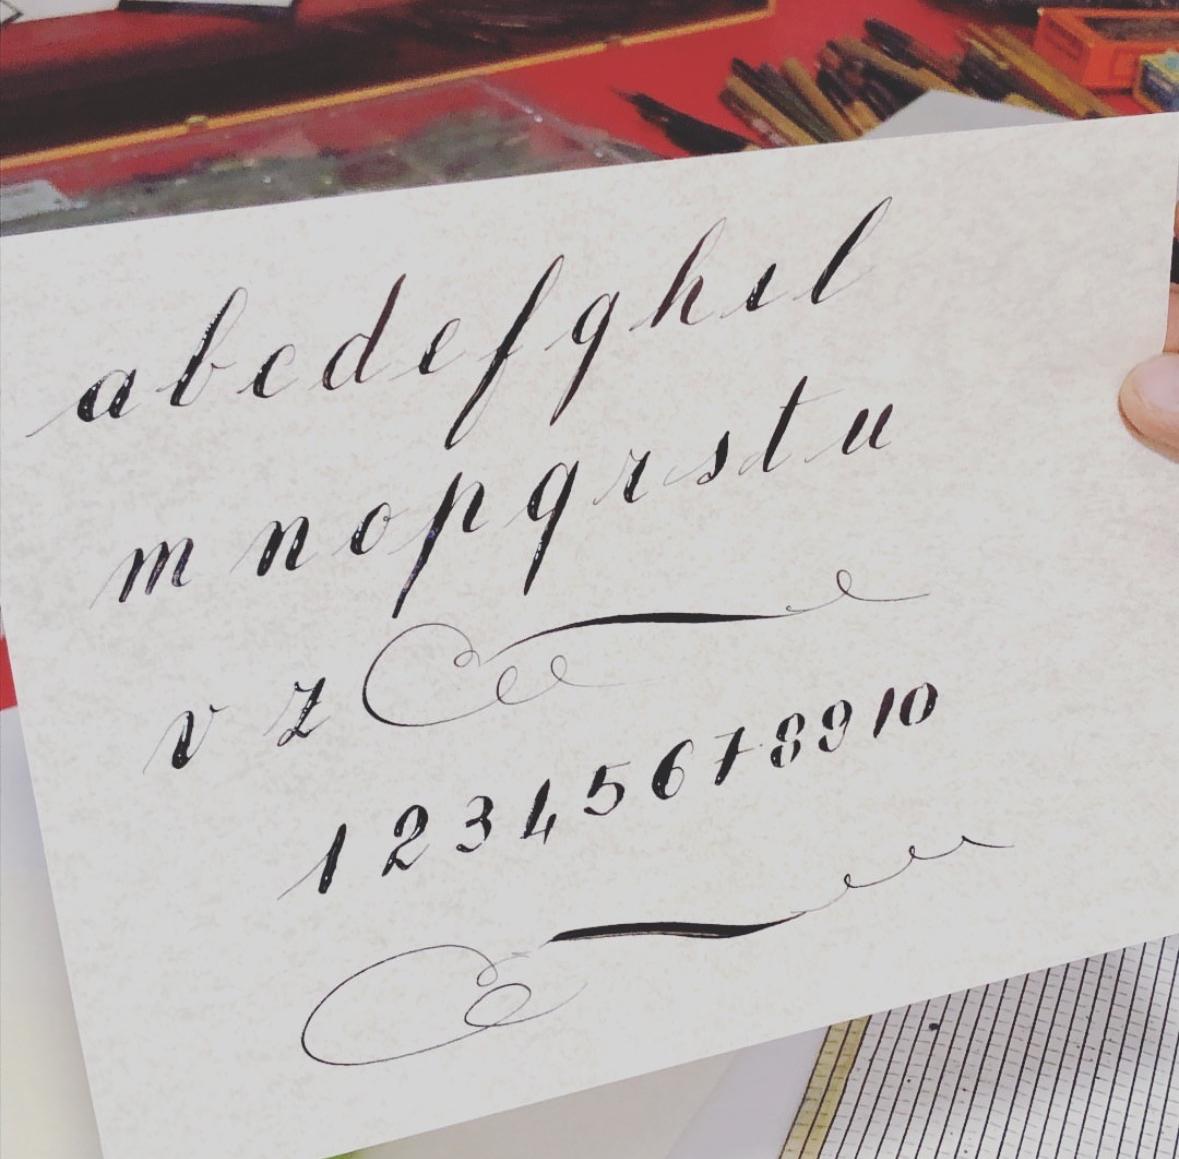 a b c d e f g h i l
m n o p q r s t u
v z
1 2 3 4 5 6 7 8 9 10